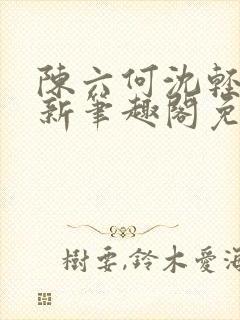 陳六何沈輕
新筆趣閣免
樹要,鈴木愛海